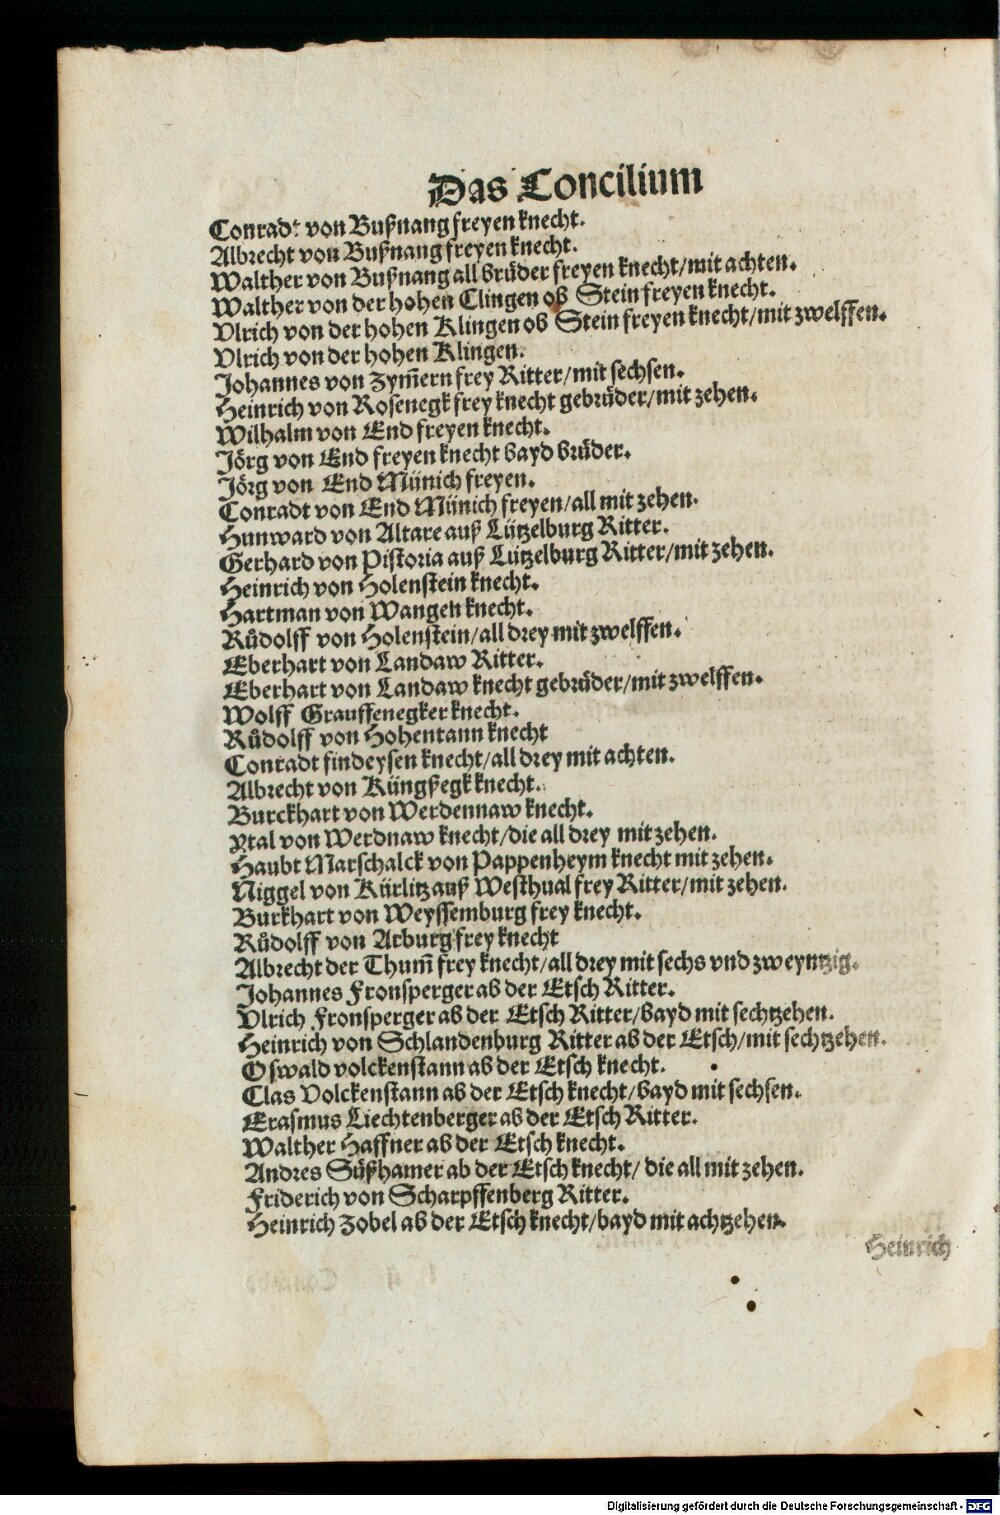 Das Concilium
Conradt von Bußnang freyen knecht.
Albrecht von Bußnang freyen knecht.
Walther von Bußnang all brüder freyen knecht/mit achten.
Walther von der hohen Clingen ob Stein freyen knecht.
Vlrich von der hohen Klingen ob Stein freyen knecht/mit zwelffen.
Vlrich von der hohen Klingen.
Johannes von Zym̄ern frey Ritter/mit sechsen.
Heinrich von Rosenegk frey knecht gebrüder/mit zehen.
Wilhalm von End freyen knecht.
Jörg von End freyen knecht bayd brüder.
Jörg von End Münich freyen.
Conradt von End Münich freyen/all mit zehen.
Hunward von Altare auß Lützelburg Ritter.
Gerhard von Pistoria auß Lützelburg Ritter/mit zehen.
Heinrich von Holenstein knecht.
Hartman von Wangen knecht.
Růdolff von Holenstein/all drey mit zwelffen.
Eberhart von Landaw Ritter.
Eberhart von Landaw knecht gebrüder/mit zwelffen.
Wolff Grauffenegker knecht.
Růdolff von Hohentann knecht
Conradt findeysen knecht/all drey mit achten.
Albrecht von Küngßegk knecht.
Burckhart von Werdennaw knecht.
Ytal von Werdnaw knecht/die all drey mit zehen.
Haubt Marschalck von Pappenheym knecht mit zehen.
Niggel von Kürlitz auß Westhual frey Ritter/mit zehen.
Burkhart von Weyssemburg frey knecht.
Růdolff von Arburg frey knecht
Albrecht der Thum̄ frey knecht/all drey mit sechs vnd zweyntzig.
Johannes Fronsperger ab der Etsch Ritter.
Vlrich Fronsperger ab der Etsch Ritter/bayd mit sechtzehen.
Heinrich von Schlandenburg Ritter ab der Etsch/mit sechtzehen.
Oswald volckenstann ab der Etsch knecht.
Clas Volckenstann ab der Etsch knecht/bayd mit sechsen.
Erasmus Liechtenberger ab der Etsch Ritter.
Walther Haffner ab der Etsch knecht.
Andres Süßhamer ab der Etsch knecht/ die all mit zehen.
Friderich von Scharpffenberg Ritter.
Heinrich Zobel ab der Etsch knecht/bayd mit achtzehen.
Heinrich
Digitalisierung gefördert durch die Deutsche Forschungsgemeinschaft - DFG